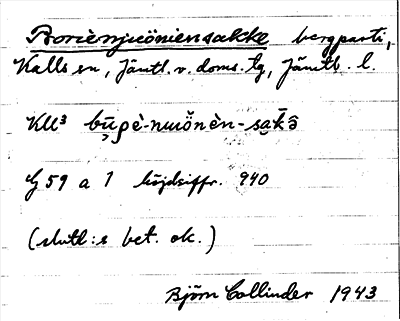 Borienjuöniensakke, bergparti,
Kalls sn, Jämtl. v. doms. lg, Jämtl. l.
KU³ būρè-nuöǹèn-sa̮k̄â
G 59 a 1 höjdsiffr. 940
(slutl:s bet. ok.)
Björn Collinder 1943